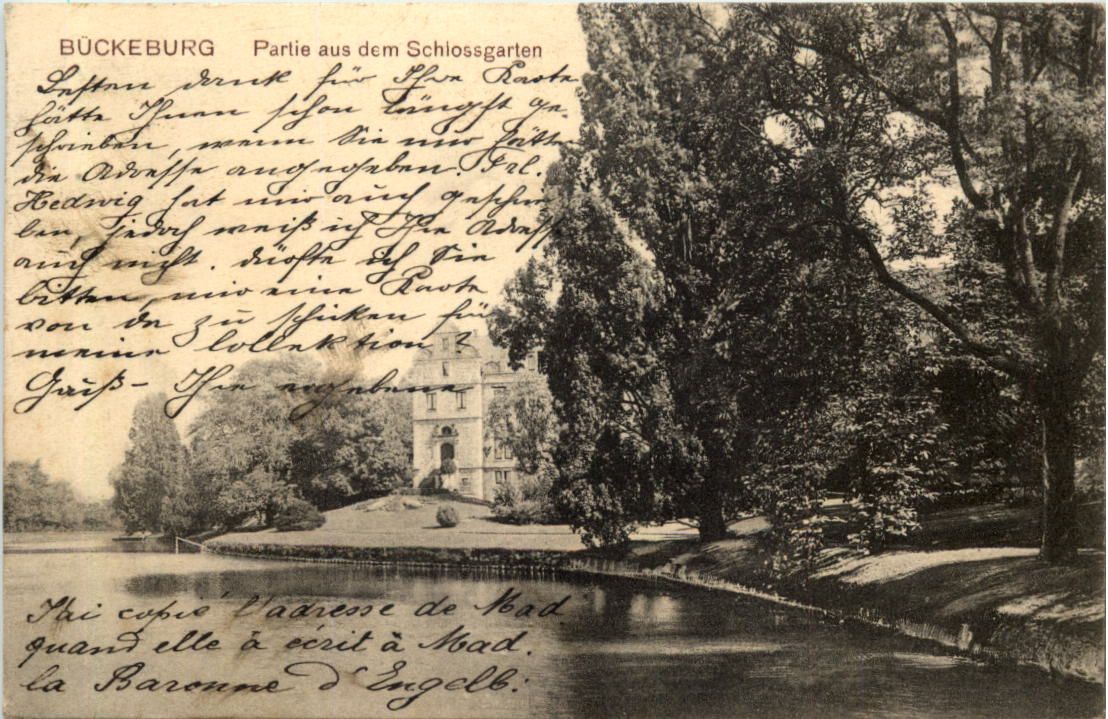 BÜCKEBURG Partie aus dem Schlossgarten
Besten dank für Ihre Karte
hätte Ihnen schon längst ge-
schrieben, wenn Sie nur hätten
die Adresse angegeben. Frl.
Hedwig hat mir auch geschrie-
ben, jedoch weiß ich Ihre Adresse
auch nicht. dürfte ich Sie
bitten, mir eine Karte
von da zu schicken für
meine Collektion?
Gruß- Ihre ergebene
J'ai copié l'adresse de Mad.
quand elle à écrit à Mad.
la Baronne d'Engelb: